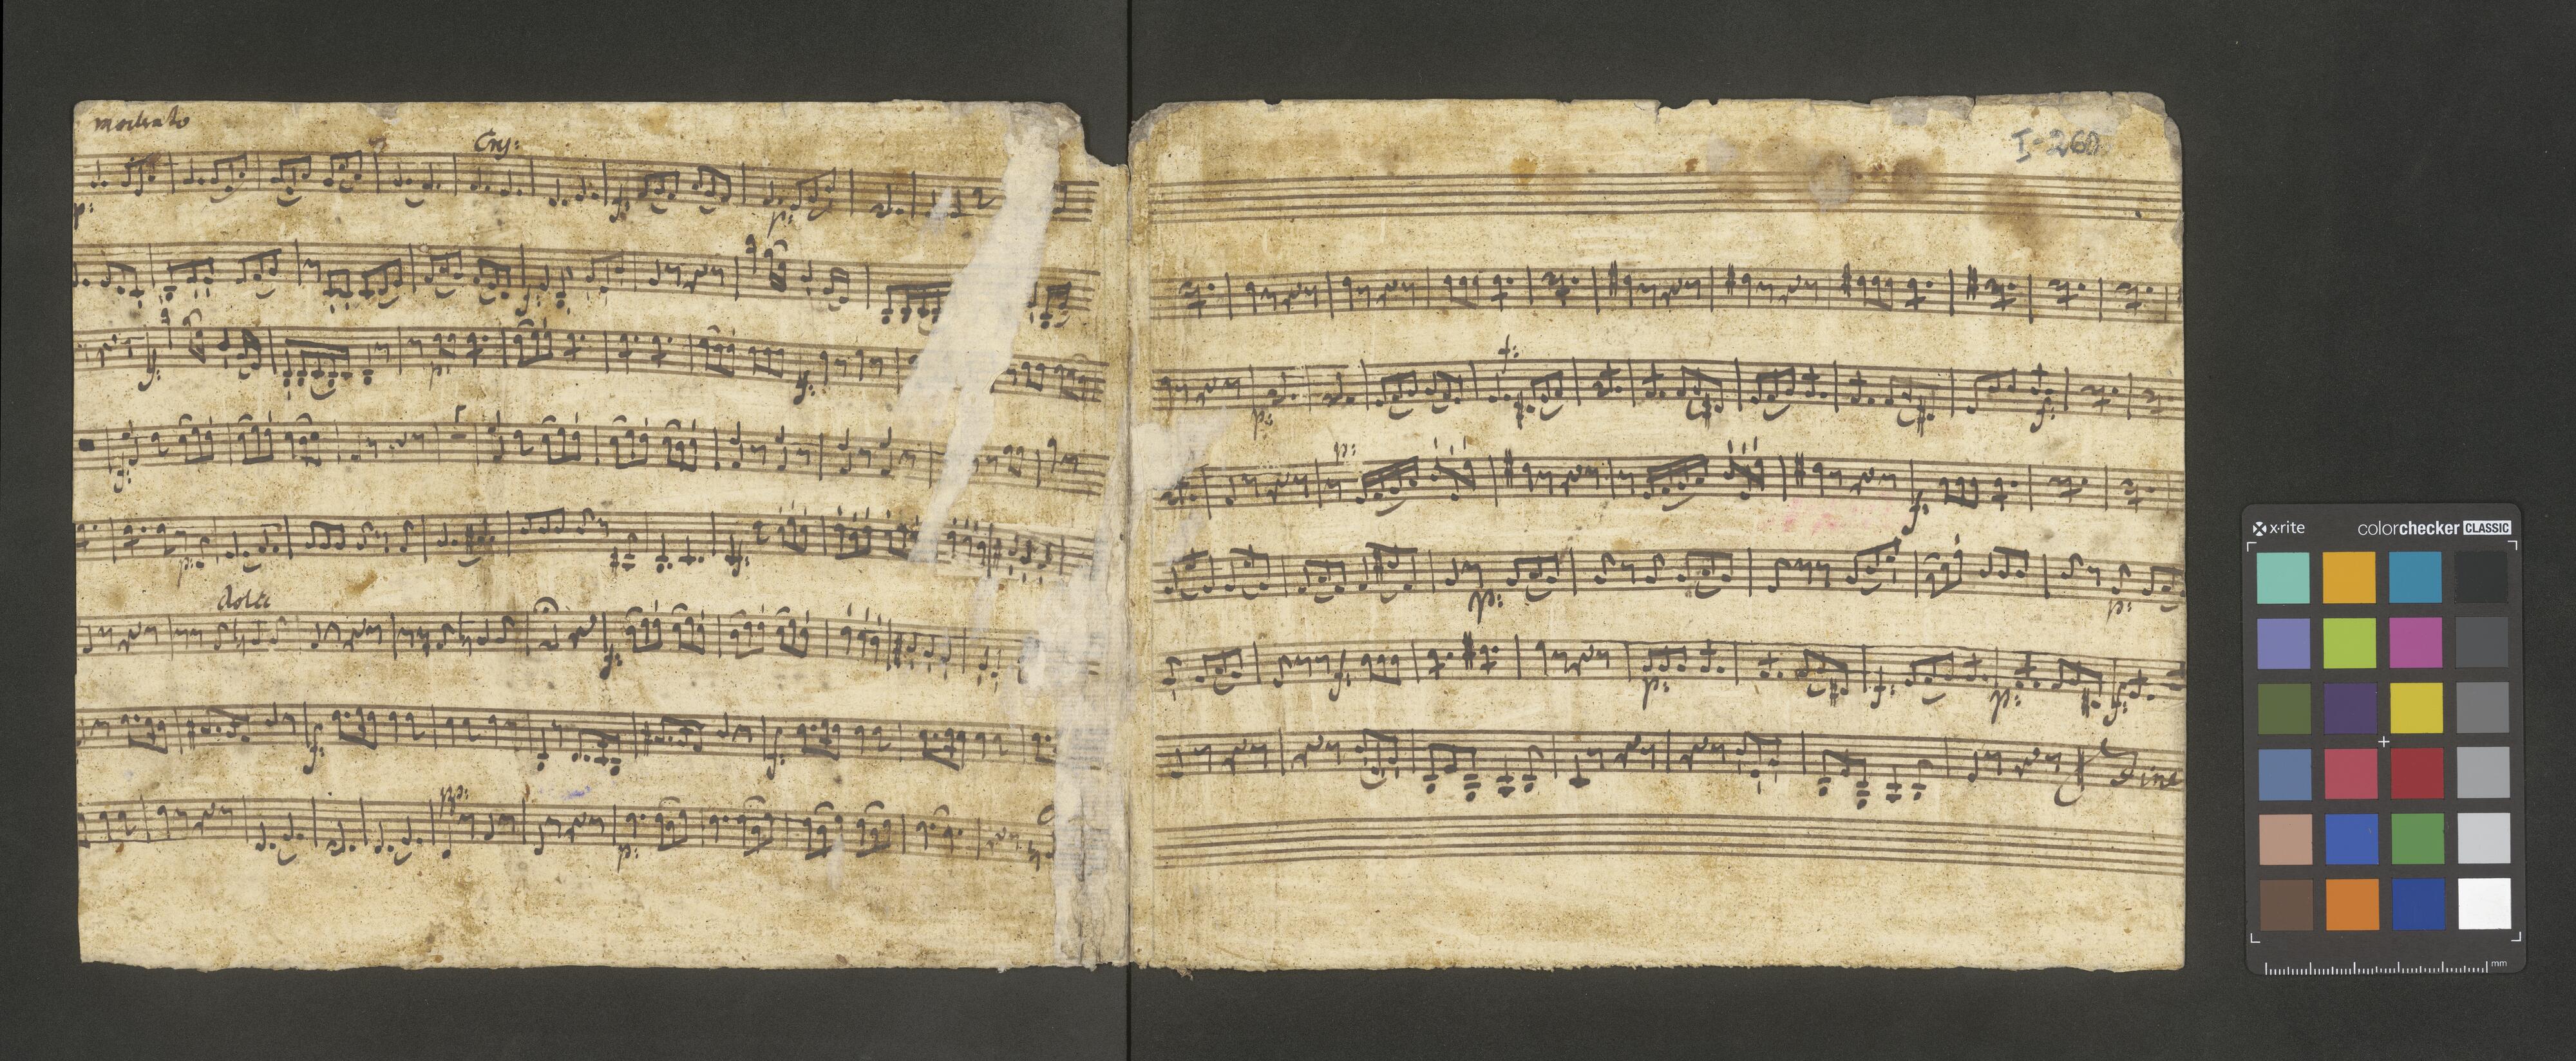 moderato
Cres:
p:
f:
p:
f:
f:
p:
f:
f:
p:
f:
dolce
f:
f:
f:
pp:
p:
I-260
p:
f:
f:
p:
f:
p:
p:
f:
p:
f:
p:
f:
Fine
x-rite
colorchecker CLASSIC
mm